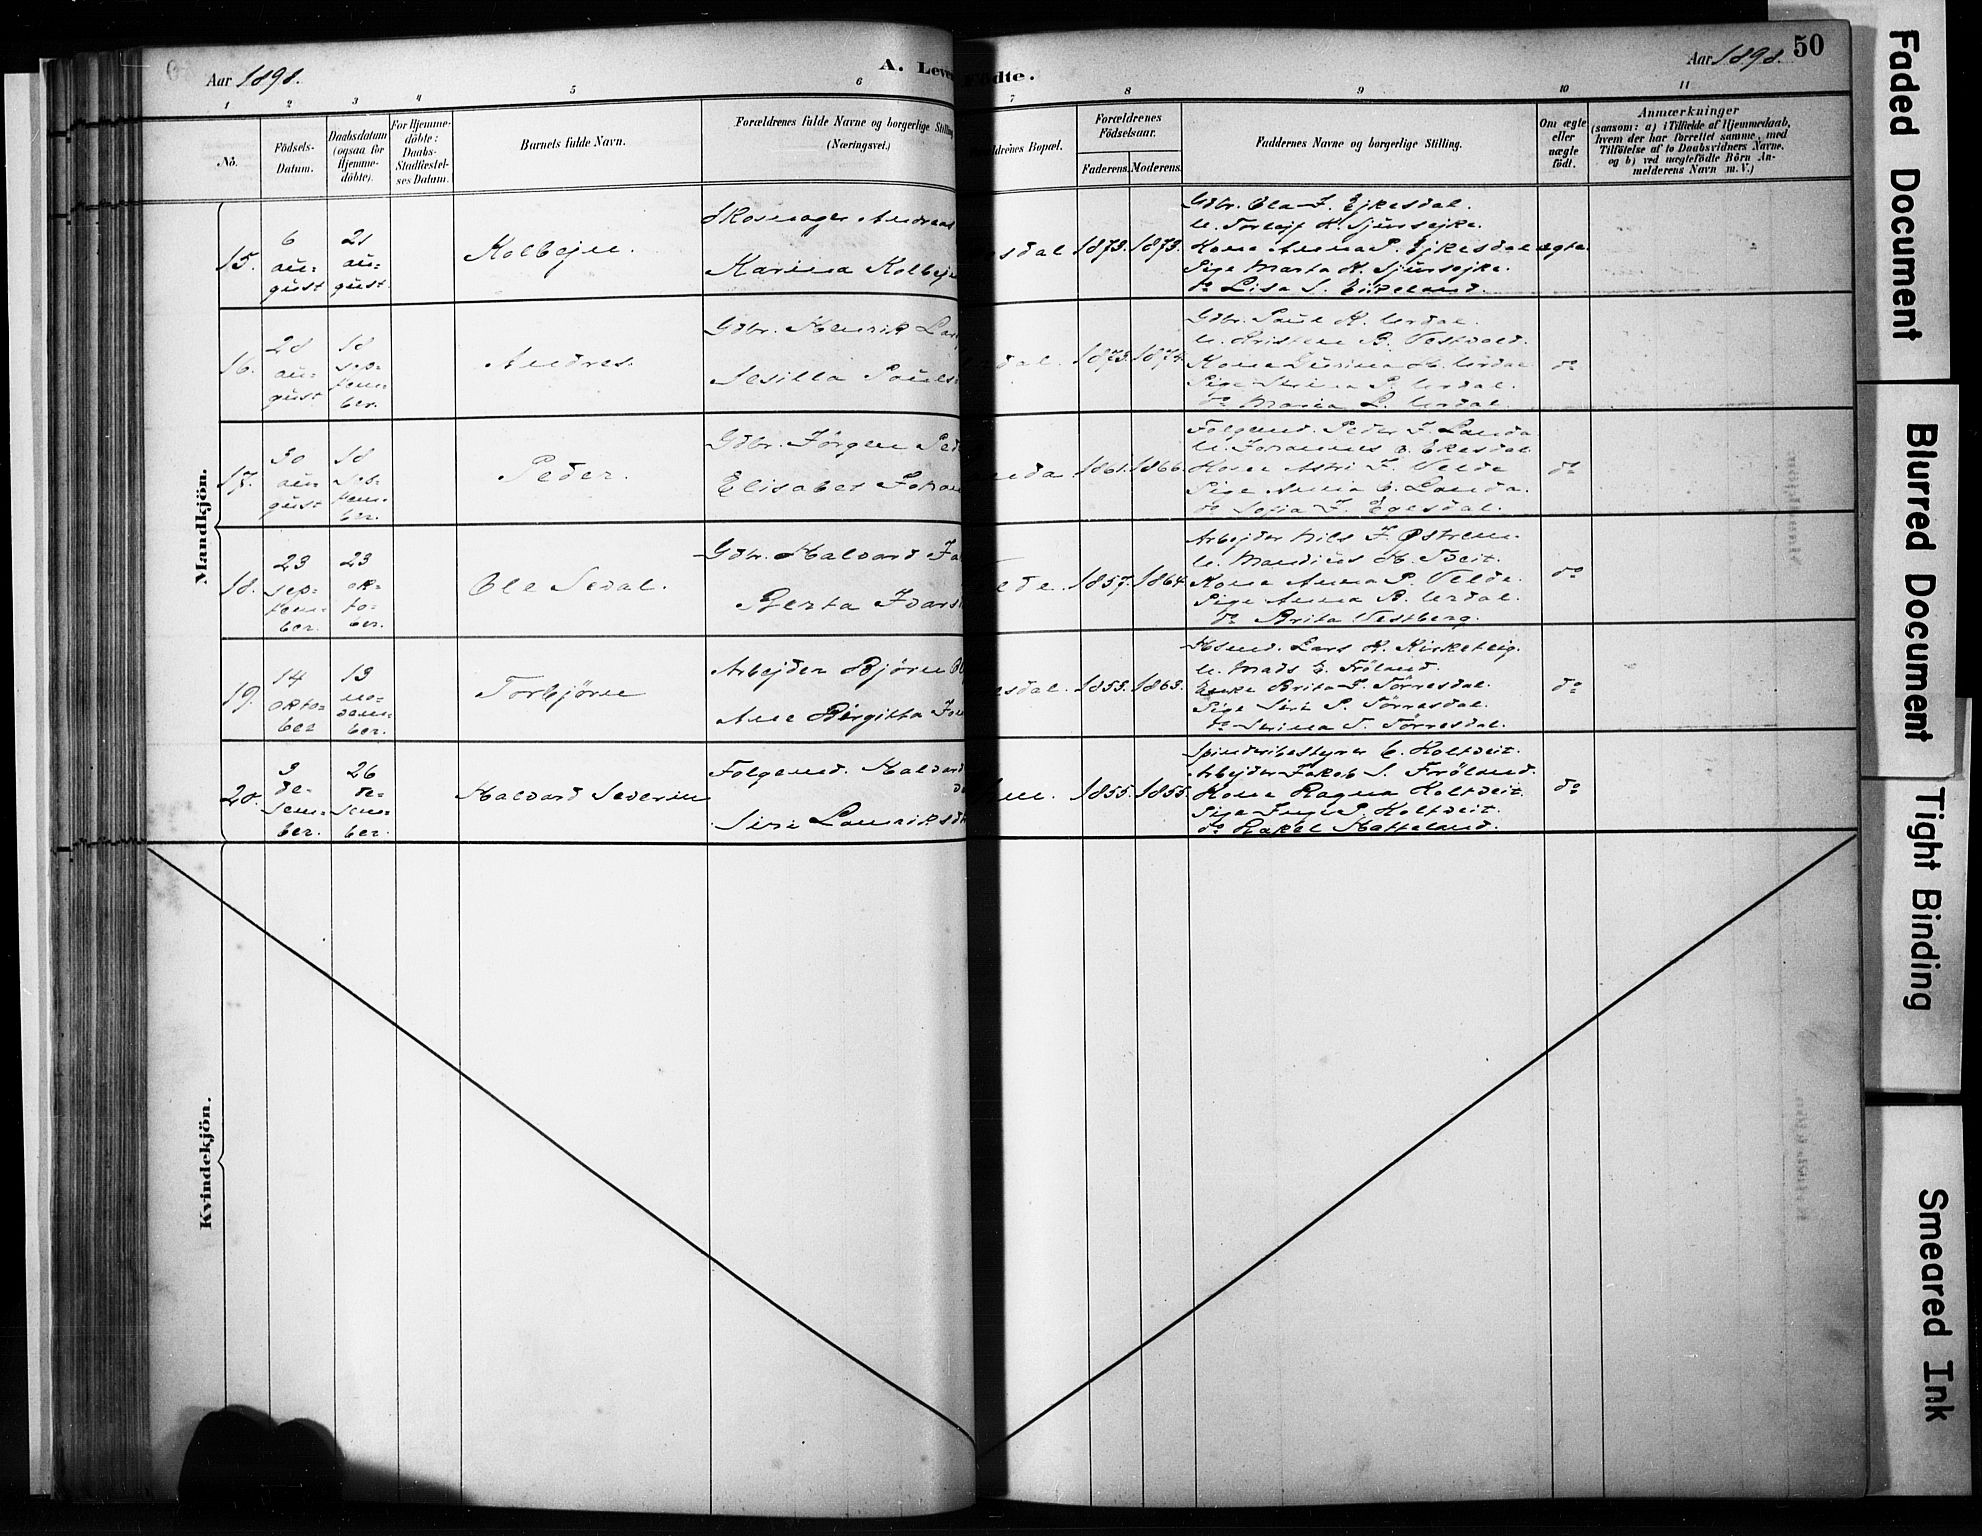 Aar 1898.
A. Leve
Födte.
Aar 1898.
50
1 2 3 4 5 6 7 8 9 10 11
No.
Födsels-
Datum.
Daabsdatum
(ogsaa for
Hjemme-
döbte).
For Hjemme-
döbte:
Daabs-
Stadfæstel-
ses Datum.
Barnets fulde Navn.
Forældrenes fulde Navne og borgerlige Stilling
(Næringsvei.)
ældrenes Bopæl.
Forældrenes
Födselsaar.
Faderens. Moderens.
Faddernes Navne og borgerlige Stilling.
Om ægte
eller
uægte
födt.
Anmærkninger
(saasom: a) i Tilfælde af Hjemmedaab,
hvem der har forrettet samme, med
Tilföielse af to Daabsvidners Navne,
og b) ved uægtefödte Börn An-
melderens Navn m.V.)
Mandkjön.
15.
6
au-
gust
21
au-
gust
Kolbejn.
Skomager Andreas
Karina Kolbej
sdal
1873. 1873.
Gdbr. Ola J. Ejkesdal.
U. Torlejf K. Sjursejke.
Kone Anna P. Ejkesdal
Pige Marta K. Sjursejke.
do Lisa S. Eikeland.
ægte.
16.
28
au-
gust
18
sep-
tem-
ber.
Andres.
Gdbr. Henrik La
Sesilla Pouls
dal.
1873. 1874.
Gdbr. Poul H. Urdal.
U. Kristen B.
Kone H. Urdal
Pige Serina P. Urdal.
do Maria L. Urdal.
do
17.
30
au-
gust
18
sep-
tem-
ber.
Peder.
Gdbr. Jørgen Ped
Elisabet Johan
nda
1861. 1866.
Folgemd. Peder J. Landa
U. Johannes
Kone J. Velde
Pige Anna Landa.
do Sofia J. Egesdal.
do
18.
23
sep-
tem-
ber.
23
ok-
to-
ber.
Ole Sedal.
Gdbr. Halvard
Berta Ivars
elde.
1857. 1864
Arbejder Nils J. Østrem.
U. Mandius H. Tveit.
Kone Anna P. Velde.
Pige Anna B. Urdal.
do Brita Vestberg.
do
19.
14
okto-
ber
13
no-
vem-
ber.
Torbjørn
Arbejder Bjørn
Ane Birgitta
esdal.
1853. 1863.
Lars K. Kirketeig.
U. Mads E. Frøland.
Enke Brita J. Tørresdal.
Pige Siri P. Tørresdal.
do Serina T. Tørresdal.
do
20.
3
de-
sem-
ber.
26
de-
sem-
ber.
Halvard Severin
Folgemd. Halvard
Siri Lauriksd
1855. 1855.
Spinderibestyrer Holtveit.
Arbejder Jakob S. Frøland.
Kone Ragna Holtveit.
Pige Inge P. Holtveit.
do Rakel Hatteland.
do
Kvindekjön.
Faded Document
Blurred Document
Tight Binding
Smeared Ink